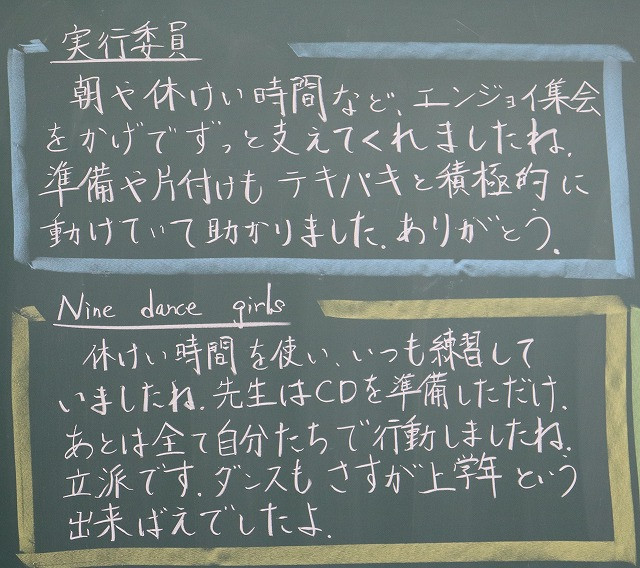 実行委員
朝や休けい時間など、エンジョイ集会
をかげでずっと支えてくれましたね.
準備や片付けもテキパキと積極的に
動けていて助かりました.ありがとう.
Nine dance girls
休けい時間を使い、いつも練習して
いましたね.先生はCDを準備しただけ.
あとは全て自分たちで行動しましたね.
立派です.ダンスもさすが上学年という
出来ばえでしたよ.